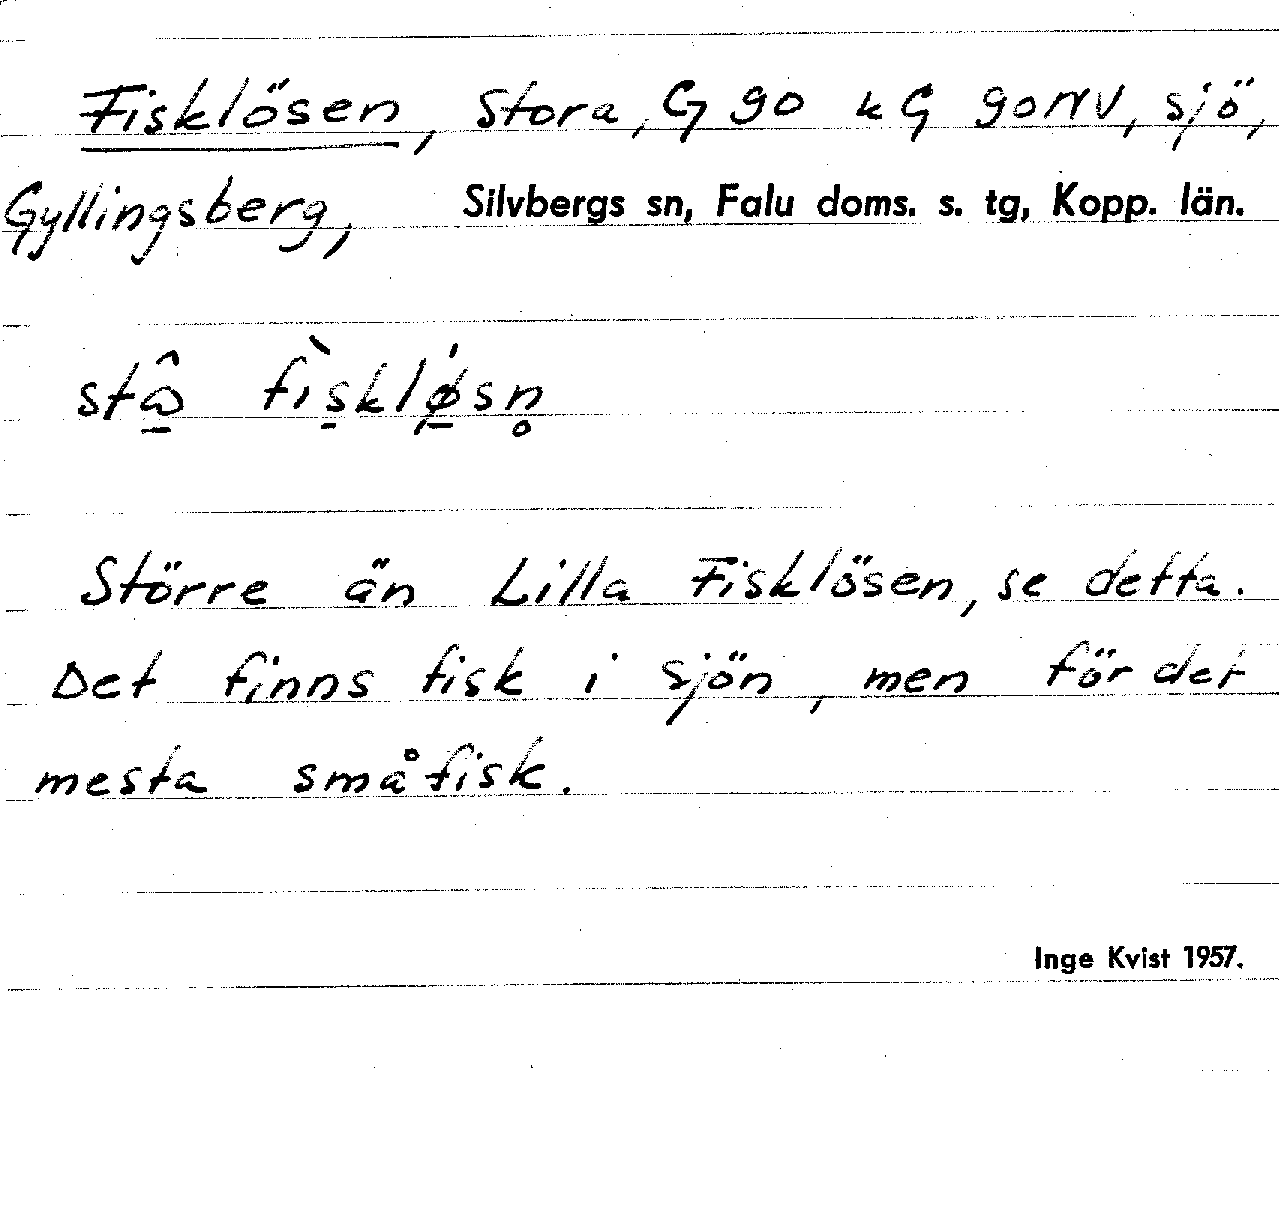 Fisklösen, Stora, G 90 k G 90NV, sjö,
Gyllingsberg, Silvbergs sn, Falu doms. s. tg, Kopp. län.
Större än Lilla Fisklösen, se detta.
Det finns fisk i sjön, men för det
mesta småfisk.
Inge Kvist 1957.